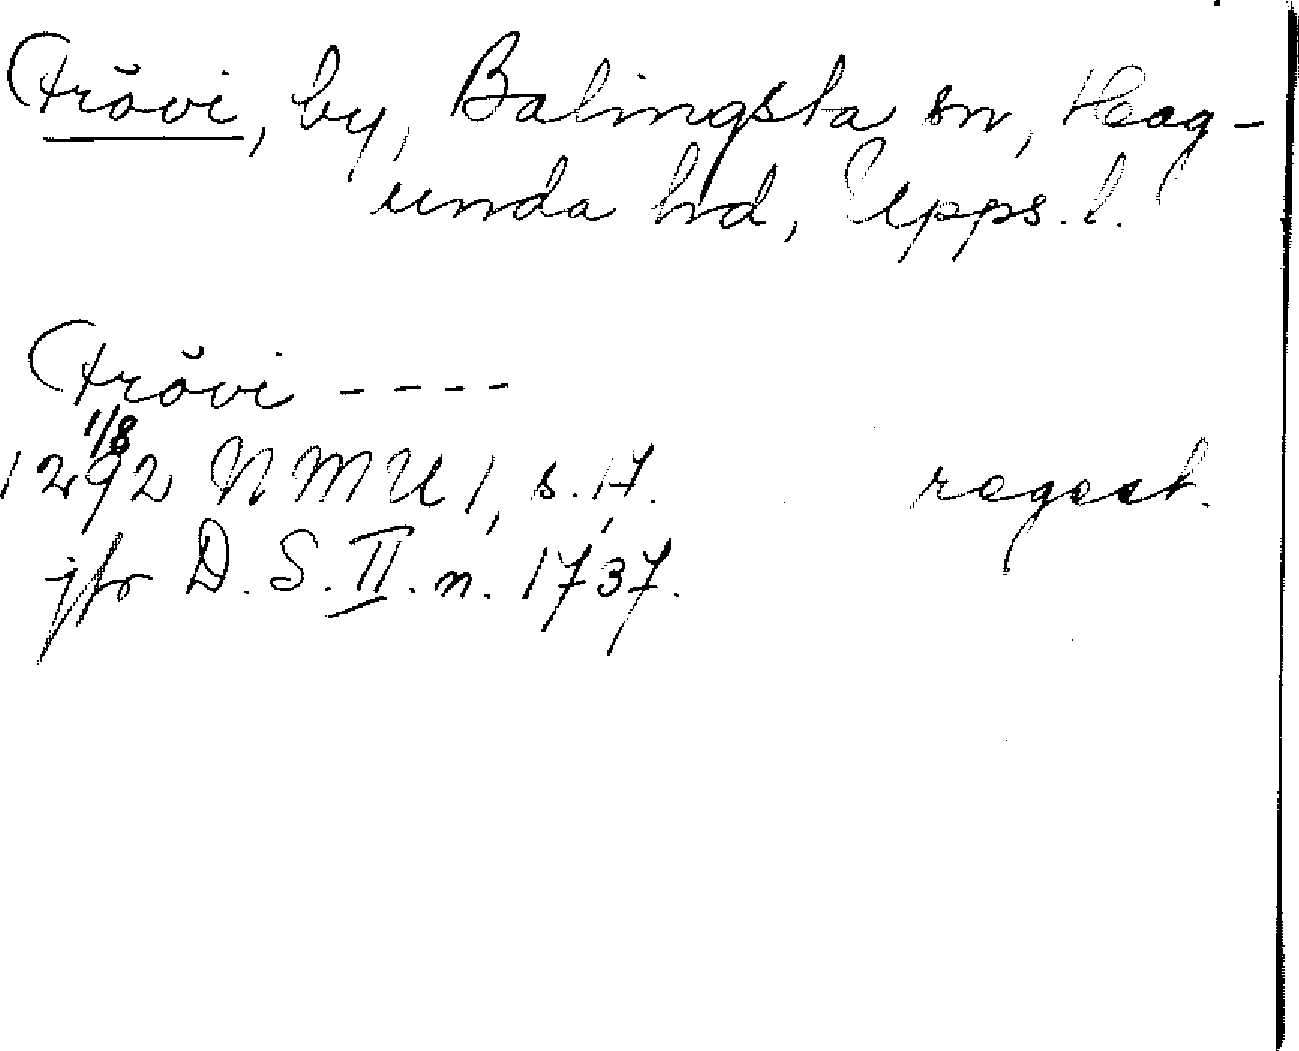 Frövi, by, Balingsta sn, Hag-
unda hd, Upps. l.
Frövi ----
1/8
1292 NMU 1, s. 17. regest.
jfr D. S. II. n. 1737.